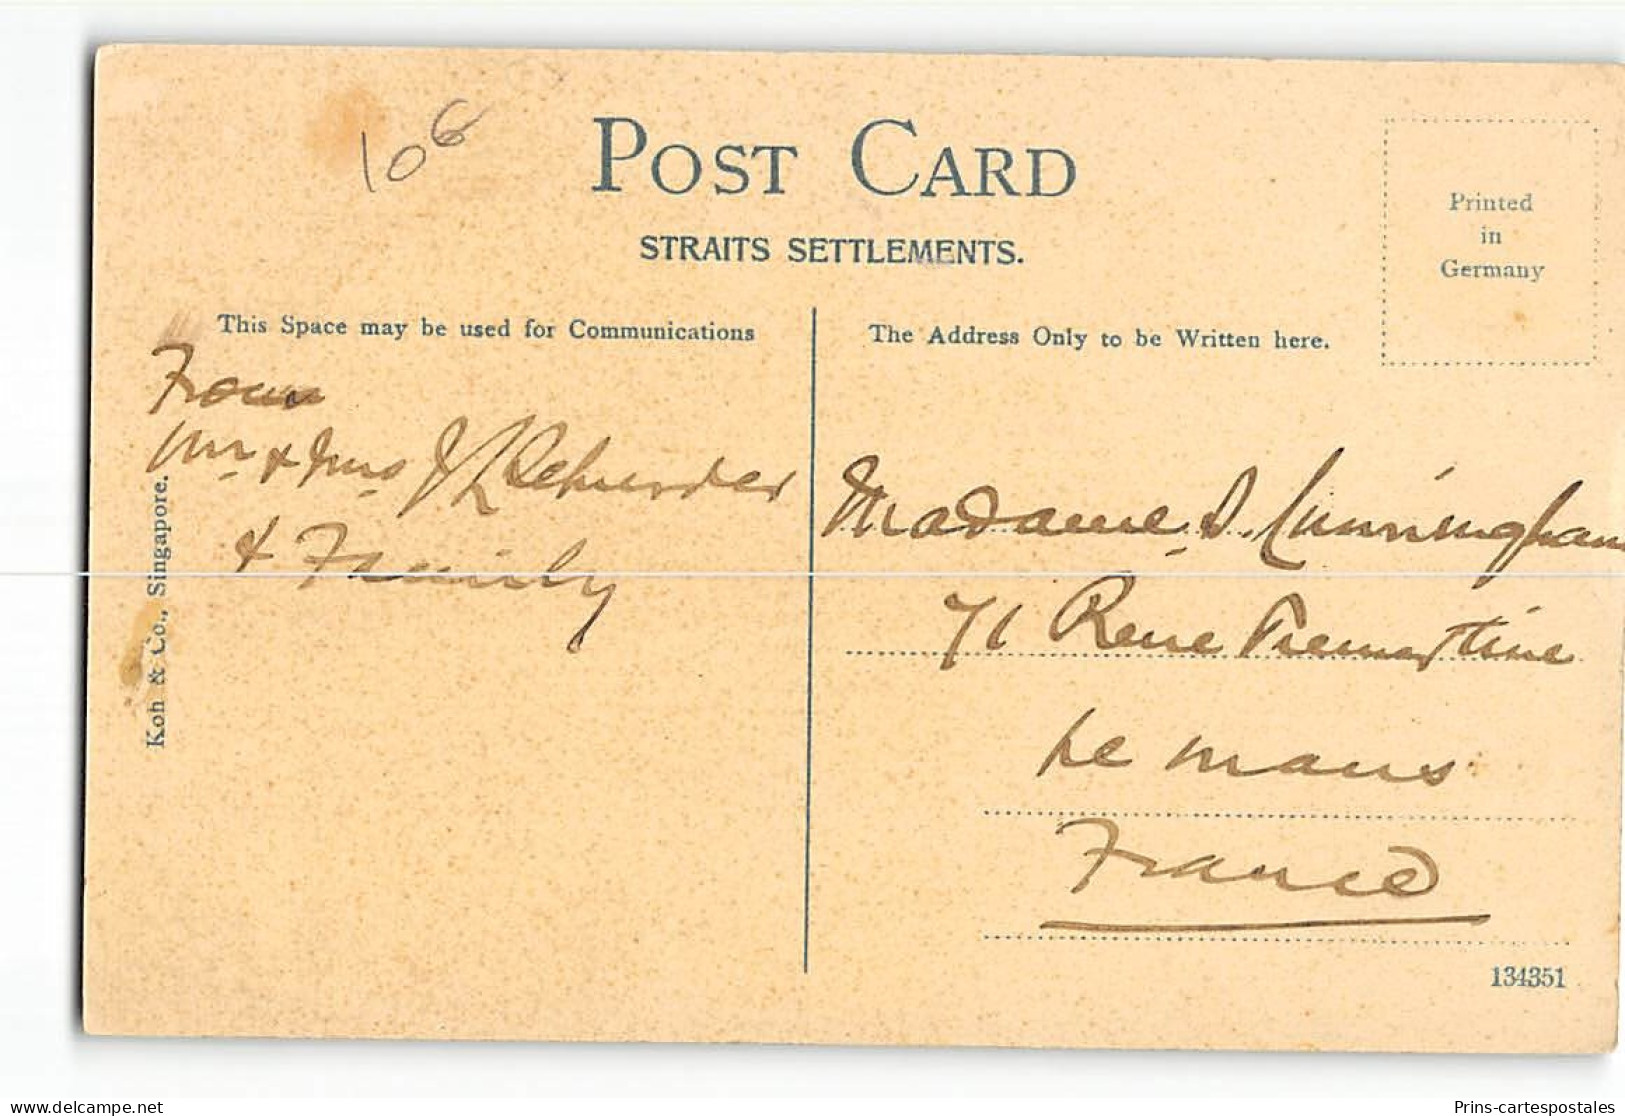 106
POST CARD
STRAITS SETTLEMENTS.
Printed
in
Germany
This Space may be used for Communications
The Address Only to be Written here.
From
Mr. & Mrs
& Family
Koh & Co., Singapore.
Madame D. Cunningham
71 Rue
Le Mans
France
134351
delcampe.net
Prins-cartespostales